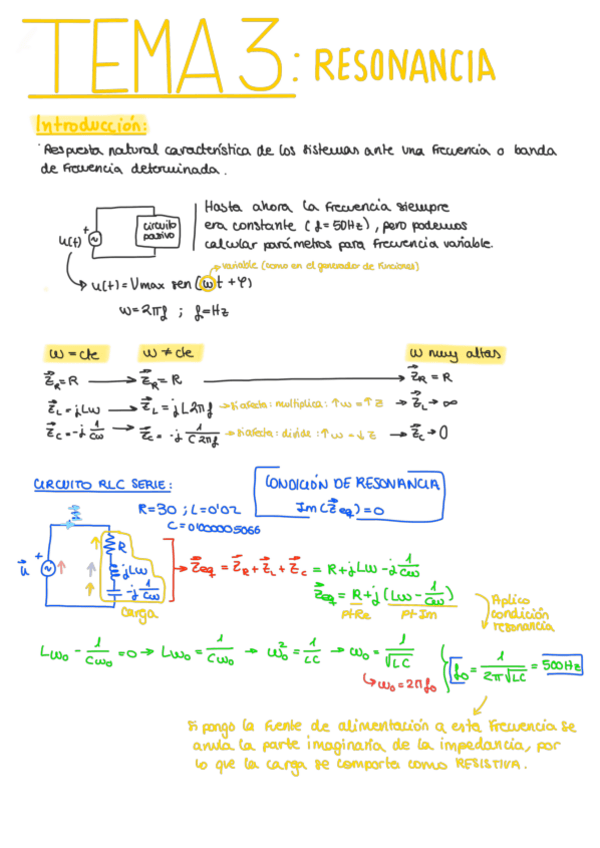 TEMA 3: RESONANCIA
Introducción:
Respuesta natural característica de los sistemas ante una frecuencia o banda
de frecuencia determinada.
u(t) + ~ circuito pasivo
Hasta ahora la frecuencia siempre
era constante (f=50Hz), pero podemos
calcular parámetros para frecuencia variable.
variable (como en el generador de funciones)
u(t) = Vmax sen(ωt + φ)
ω=2πf ; f=Hz
ω = cte ω ≠ cte ω muy altas
Z⃗R = R → Z⃗R = R → Z⃗R = R
Z⃗L = jLω → Z⃗L = jL2πf → Si afecta: multiplica: ↑ω = ↑Z → Z⃗L → ∞
Z⃗C = -j 1/Cω → Z⃗C = -j 1/C2πf → Si afecta: divide: ↑ω = ↓Z → Z⃗C → 0
CIRCUITO RLC SERIE:
R=30 ; L=0'02
C=0'000005066
CONDICIÓN DE RESONANCIA
Im(Z⃗eq)=0
u⃗ + ~ R
jLω
-j 1/Cω
Carga
Z⃗eq = Z⃗R + Z⃗L + Z⃗C = R + jLω - j 1/Cω
Z⃗eq = R + j(Lω - 1/Cω)
Pt-Re Pt-Im
Aplico
condición
resonancia
Lω₀ - 1/Cω₀ = 0 → Lω₀ = 1/Cω₀ → ω₀² = 1/LC → ω₀ = 1/√LC
ω₀ = 2πf₀
f₀ = 1/2π√LC = 500Hz
Si pongo la fuente de alimentación a esta frecuencia se
anula la parte imaginaria de la impedancia, por
lo que la carga se comporta como RESISTIVA.